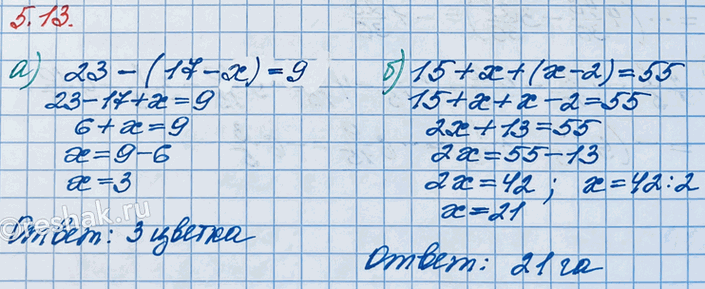 5.13.
а) 23-(17-x)=9
23-17+x=9
6+x=9
x=9-6
x=3
Ответ: 3 цветка
б) 15+x+(x-2)=55
15+x+x-2=55
2x+13=55
2x=55-13
2x=42; x=42:2
x=21
Ответ: 21 га
©reshak.ru